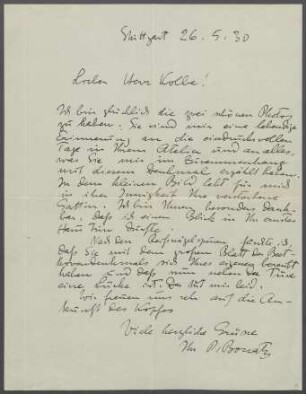 Stuttgart 26.5.30
Lieber Herr Kolbe!
Ich bin glücklich die zwei schönen Photos
zu haben. Sie sind mir eine lebendige
Erinnerung an die eindrucksvollen
Tage in Ihrem Atelier und an alles,
was Sie mir im Zusammenhang
mit diesem Denkmal erzählt haben.
In dem kleinen Bild lebt für mich
in ihrer Innigkeit Ihre verstorbene
Gattin. Ich bin Ihnen besonders dank-
bar, dass ich einen Blick in Ihr
Haus tun durfte.
Nach den fürchte ich,
dass Sie mit dem grossen Blatt des Beet-
hovendenkmals sich Ihres eigenen beraubt
haben und dass nun neben der Türe
eine Lücke ist. Das tut mir leid.
Wir freuen uns sehr auf die An-
kunft des Kopfes
Viele herzliche Grüsse
Ihr P. Bonatz